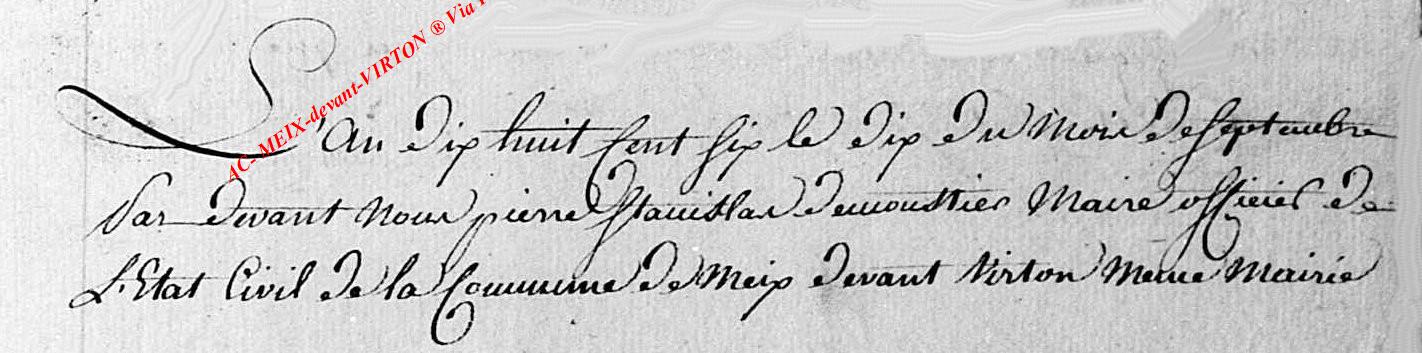 AC- MEIX-devant-VIRTON ® Via
L'An dix huit Cent Six le dix du Mois de Septembre
Par devant Nous pierre Stanislas Demoustier Maire officier de
L'Etat Civil de la Commune de Meix devant Virton Meme Mairie